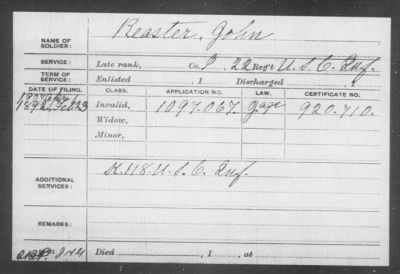 NAME OF SOLDIER: Beaster, John
SERVICE: Late rank, Co. I, 22 Reg't U. S. C. Inf.
TERM OF SERVICE: Enlisted , 1 Discharged , 1
DATE OF FILING. CLASS. APPLICATION NO. LAW. CERTIFICATE NO.
1892 Feb 23 Invalid, 1097.067. 920.710.
Widow,
Minor,
ADDITIONAL SERVICES: K. 118. U. S. C. Inf.
REMARKS:
Died , 1 , at